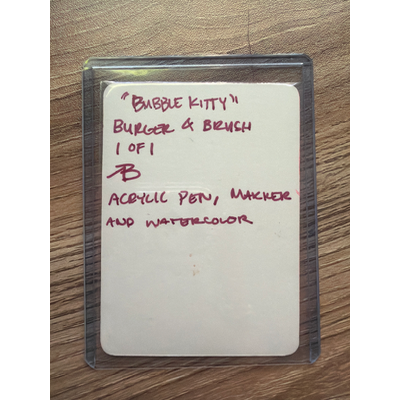 "BUBBLE KITTY"
BURGER & BRUSH
1 OF 1
B
ACRYLIC PEN, MARKER
AND WATERCOLOR